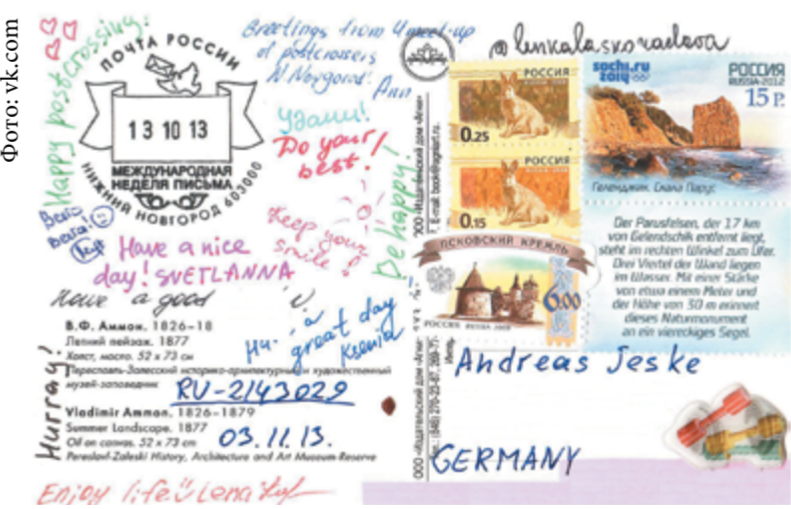 Фото: vk.com
Happy postcrossing!
ПОЧТА РОССИИ
13 10 13
МЕЖДУНАРОДНАЯ
НЕДЕЛЯ ПИСЬМА
НИЖНИЙ НОВГОРОД 603000
Greetings from 4 meet-up
of postcrossers
N. Novgorod!
Ann
Удачи!
Do your
best!
Keep your
smile!
Be happy!
Have a nice
day! SVETLANNA
Have a good
a
great day
Ksenia
Hurray!
В.Ф. Аммон. 1826–18
Летний пейзаж. 1877
Холст, масло. 52 x 73 см
Переславль-Залесский историко-архитектурный и художественный
музей-заповедник
RU-2143029
Vladimir Ammon. 1826–1879
Summer Landscape. 1877
Oil on canvas. 52 x 73 cm
03.11.13.
Pereslavl-Zaleski History, Architecture and Art Museum-Reserve
Enjoy life Lena
ООО «Издательский дом
E-mail:
РОССИЯ
0.25
РОССИЯ
0.15
ПСКОВСКИЙ КРЕМЛЬ
6.00
РОССИЯ RUSSIA 2009
sochi.ru
2014
РОССИЯ
RUSSIA·2012
15 Р.
Геленджик. Скала Парус
Der Parusfelsen, der 17 km
von Gelendschik entfernt liegt,
steht im rechten Winkel zum Ufer.
Drei Viertel der Wand liegen
im Wasser. Mit einer Stärke
von etwa einem Meter und
der Höhe von 30 m erinnert
dieses Naturmonument
an ein viereckiges Segel.
Andreas Jeske
GERMANY